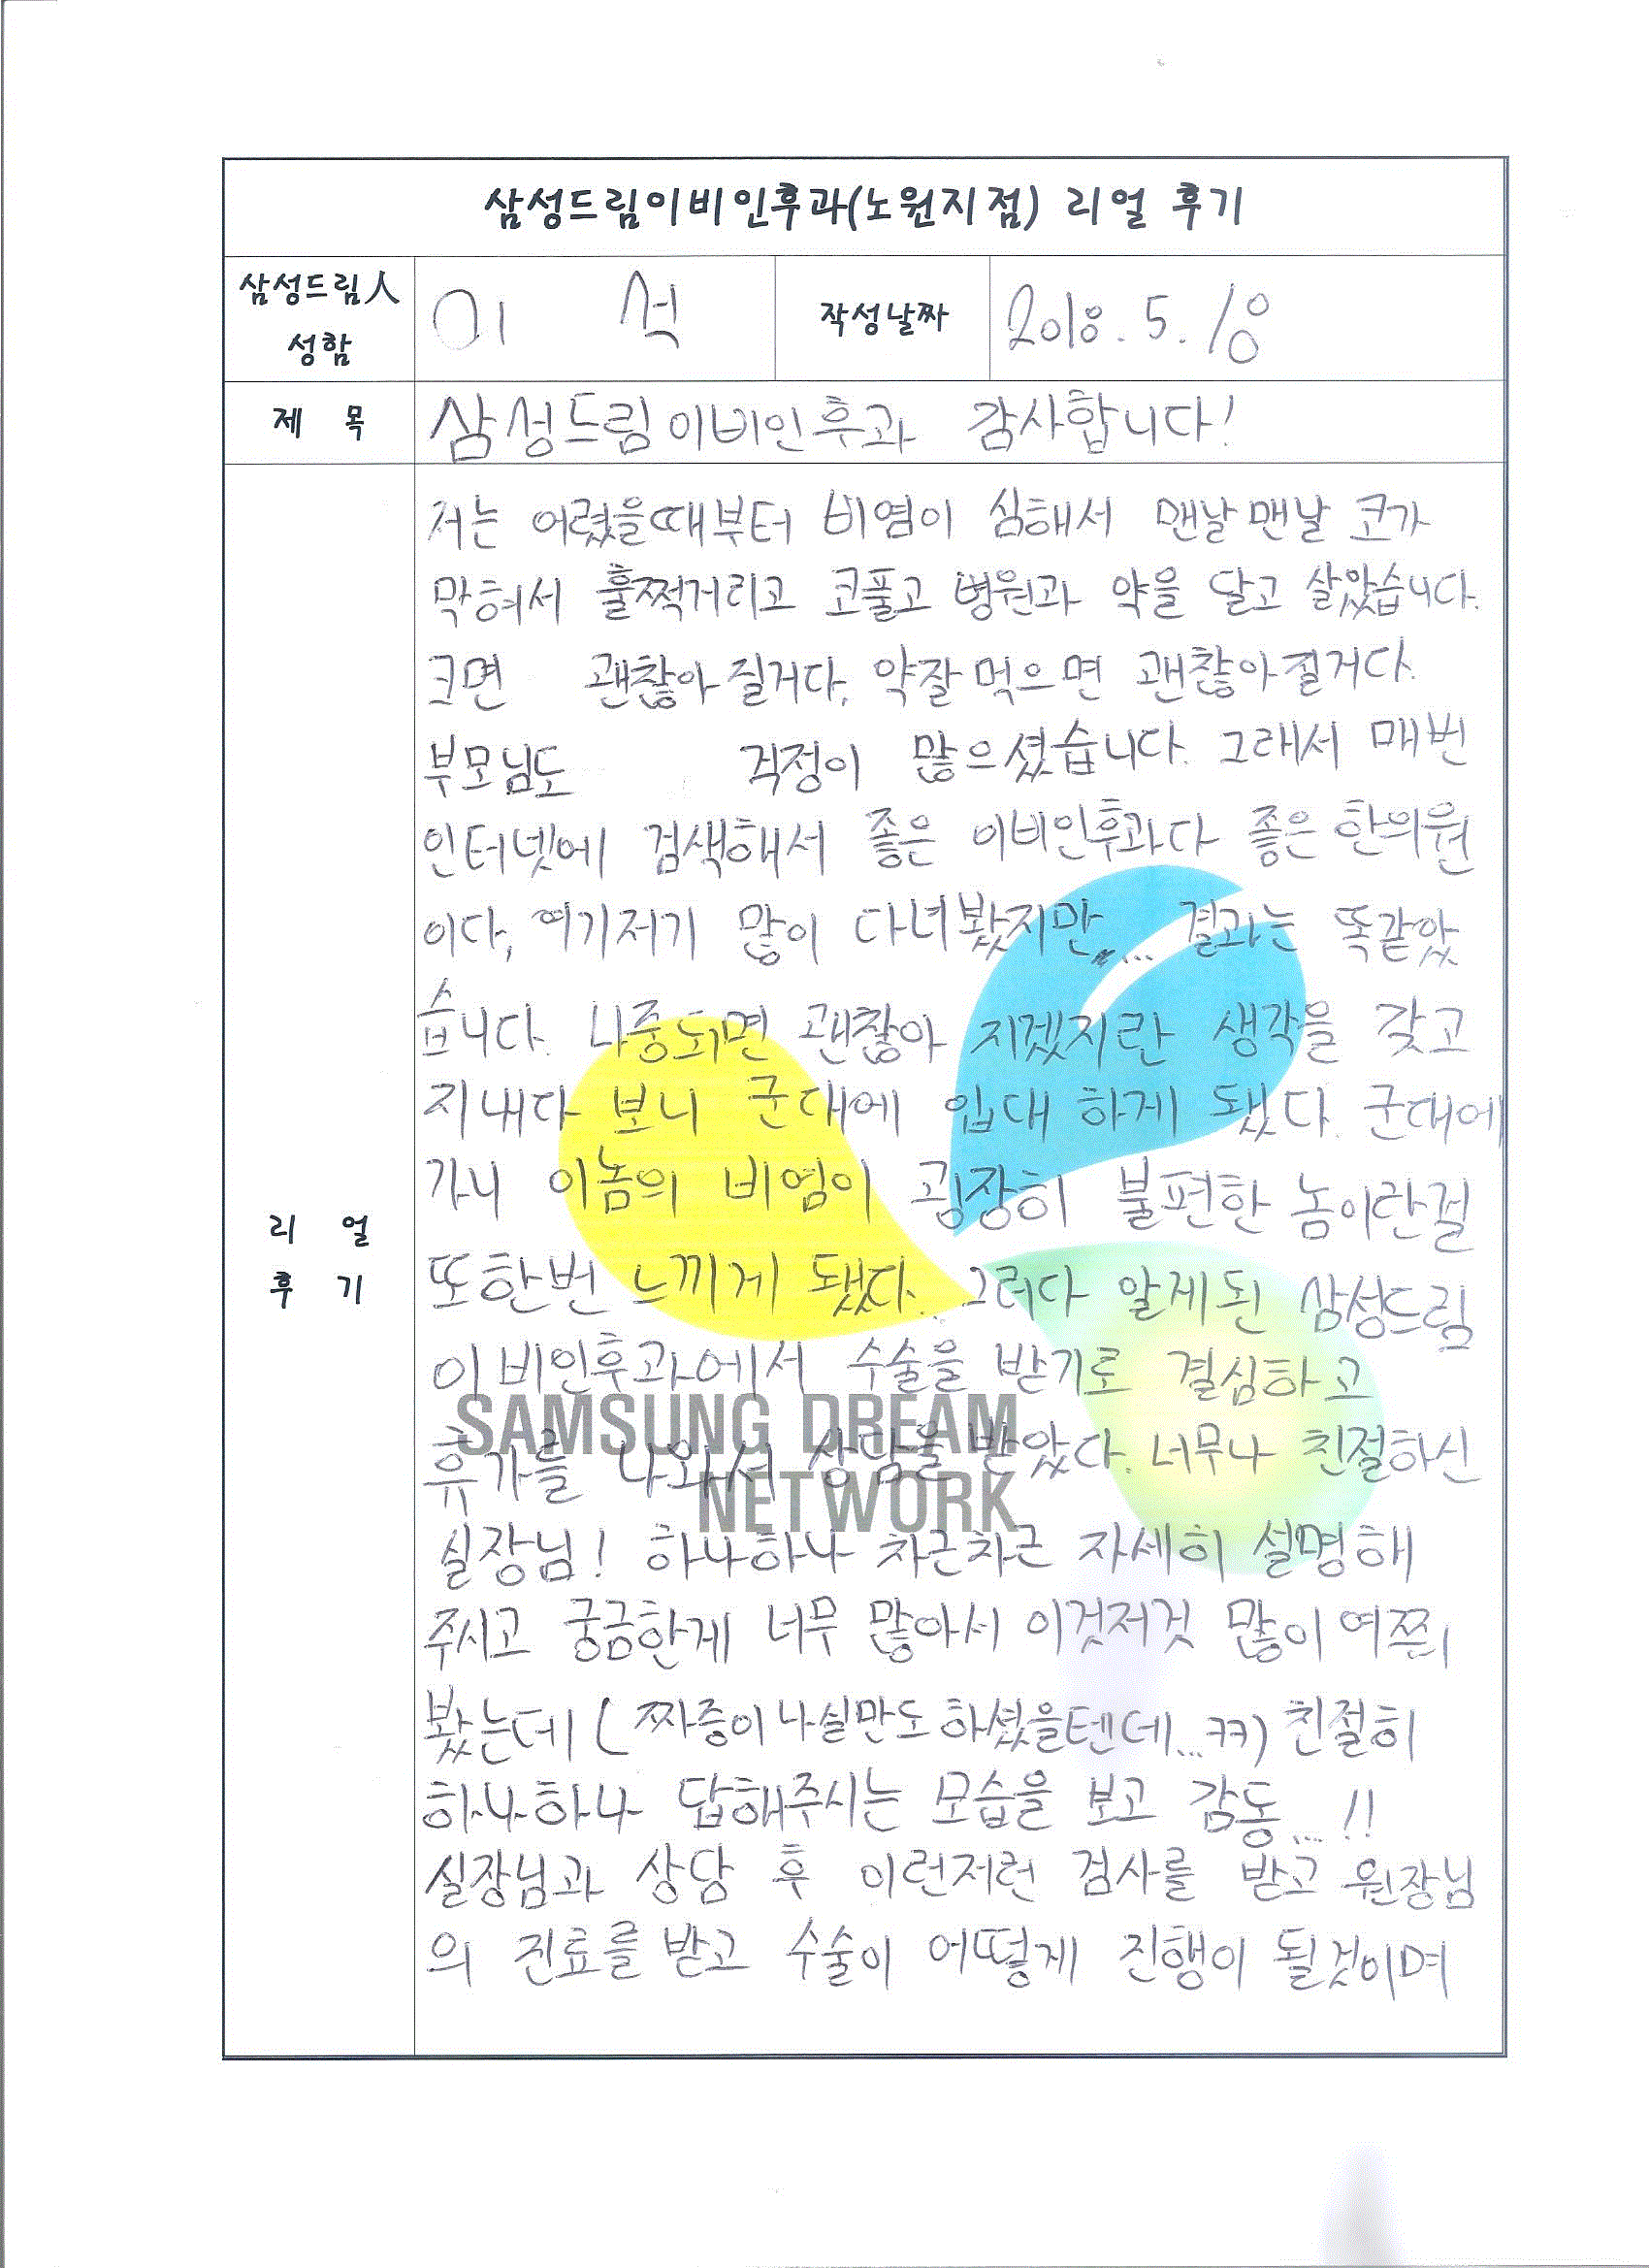 삼성드림이비인후과(노원지점) 리얼 후기
삼성드림人 성함 이 석 작성날짜 2018. 5. 18
제 목 삼성드림이비인후과 감사합니다!
리 얼 후 기
저는 어렸을때부터 비염이 심해서 맨날맨날 코가
막혀서 훌쩍거리고 코풀고 병원과 약을 달고 살았습니다.
크면 괜찮아 질거다, 약잘먹으면 괜찮아질거다.
부모님도 걱정이 많으셨습니다. 그래서 매번
인터넷에 검색해서 좋은 이비인후과다 좋은 한의원
이다, 여기저기 많이 다녀봤지만,,... 결과는 똑같았
습니다. 나중되면 괜찮아 지겠지란 생각을 갖고
지내다 보니 군대에 입대 하게 됐다. 군대에
가니 이놈의 비염이 굉장히 불편한 놈이란걸
또한번 느끼게 됐다. 그러다 알게된 삼성드림
이비인후과에서 수술을 받기로 결심하고
휴가를 나와서 상담을 받았다. 너무나 친절하신
실장님! 하나하나 차근차근 자세히 설명해
주시고 궁금한게 너무 많아서 이것저것 많이 여쭤
봤는데 (짜증이나실만도 하셨을텐데...ㅋㅋ) 친절히
하나하나 답해주시는 모습을 보고 감동...!!
실장님과 상담 후 이런저런 검사를 받고 원장님
의 진료를 받고 수술이 어떻게 진행이 될것이며
SAMSUNG DREAM
NETWORK